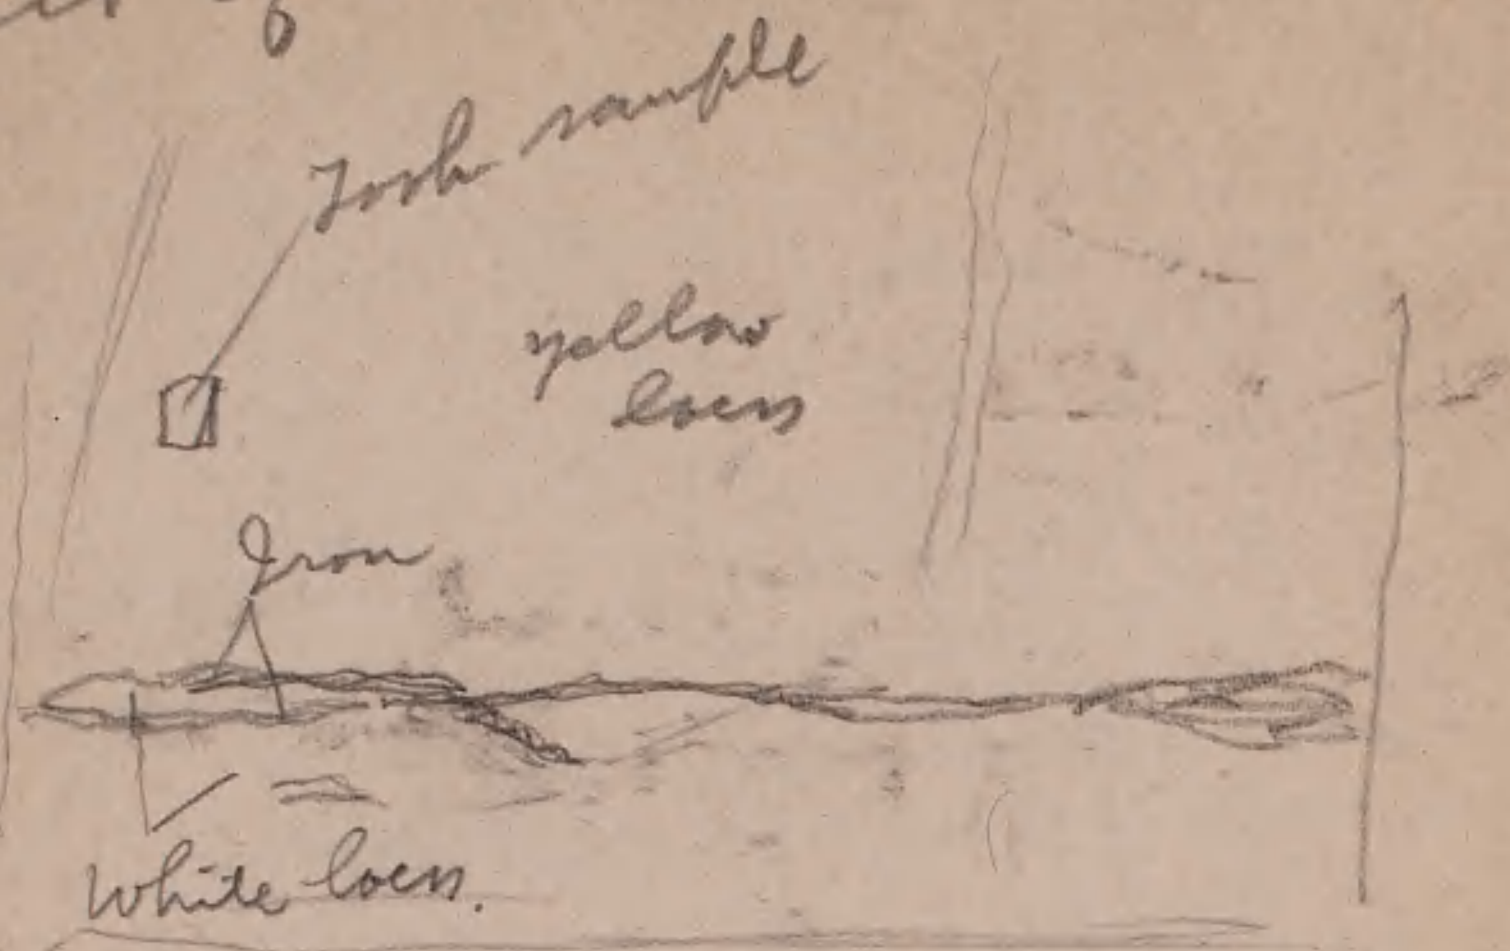 Took sample
yellow
loess
Iron
White loess.